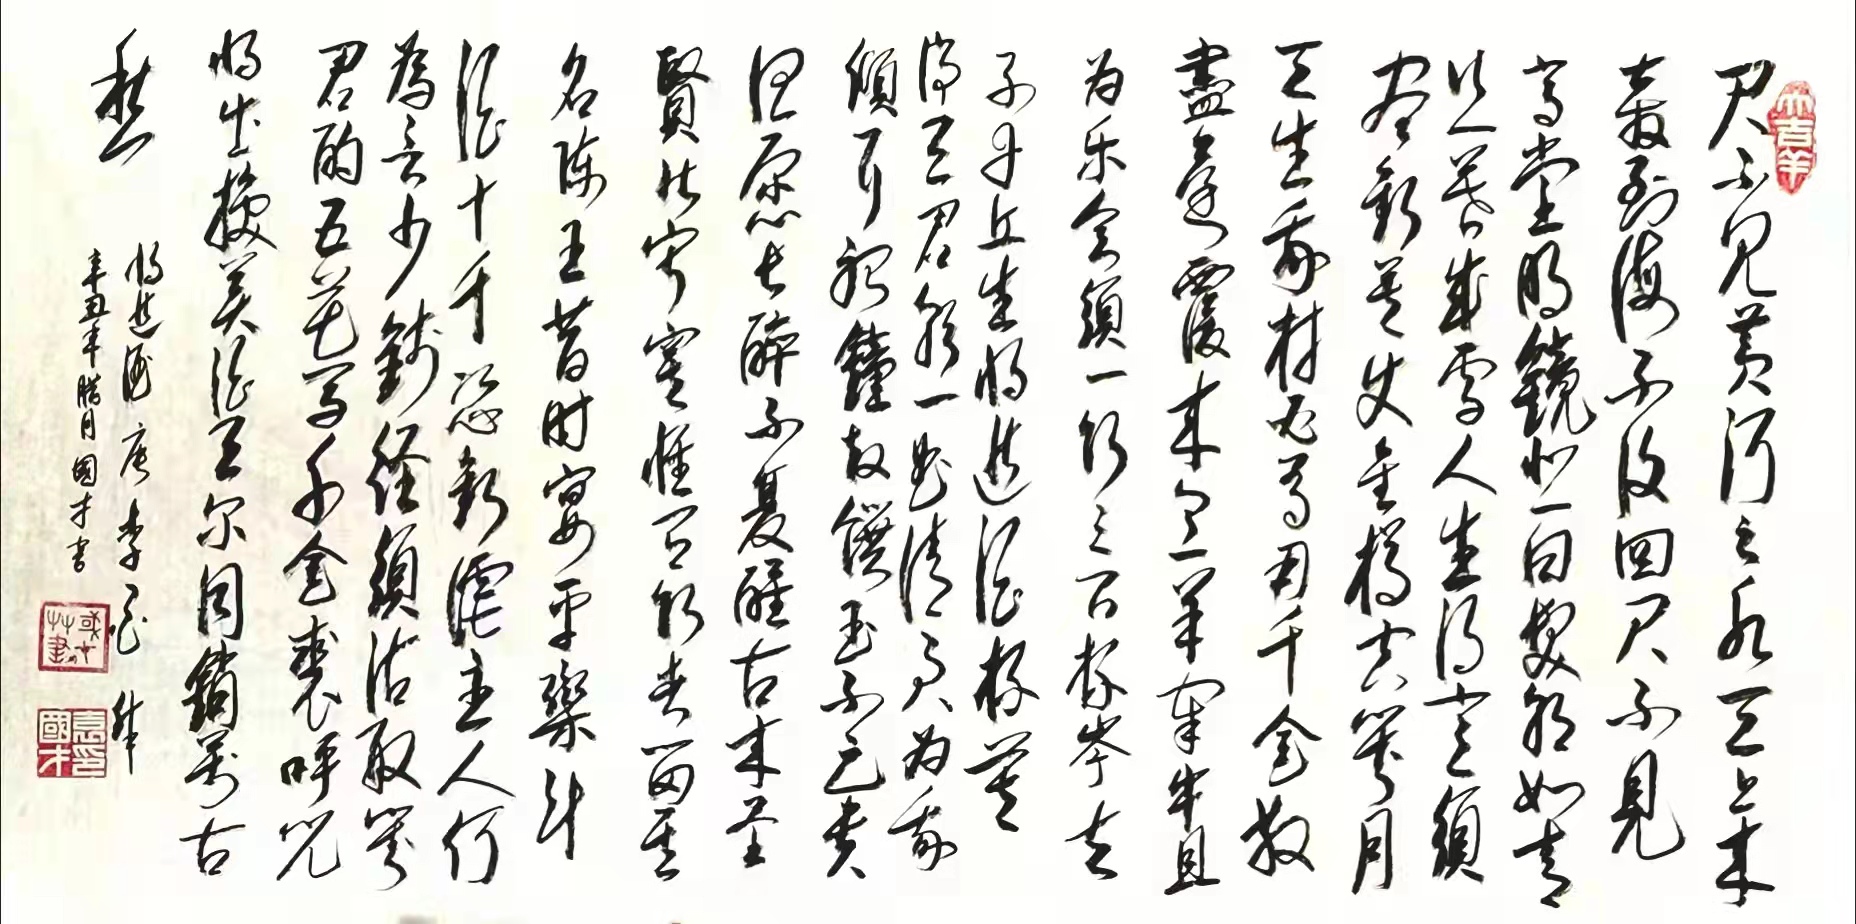 君不見黄河之水天上来
奔到海不復回君不見
高堂明鏡悲白髮朝如青
丝暮成雪人生得意須
尽歡莫使金樽空對月
天生我材必有用千金散
盡還覆来烹羊宰牛且
为乐会須一飲三百杯岑夫
子丹丘生將進酒杯莫
停与君歌一曲請君为我
傾耳聽鐘鼓饌玉不足貴
但愿长醉不復醒古来圣
賢皆寂寞惟有飲者留其
名陈王昔时宴平樂斗
酒十千恣歡謔主人何
為言少錢径須沽取對
君酌五花馬千金裘呼兒
將出換美酒与尔同銷萬古
愁
將進酒 唐 李白 詩
辛丑年腊月國才書
大吉羊
國才艸書
袁國才印